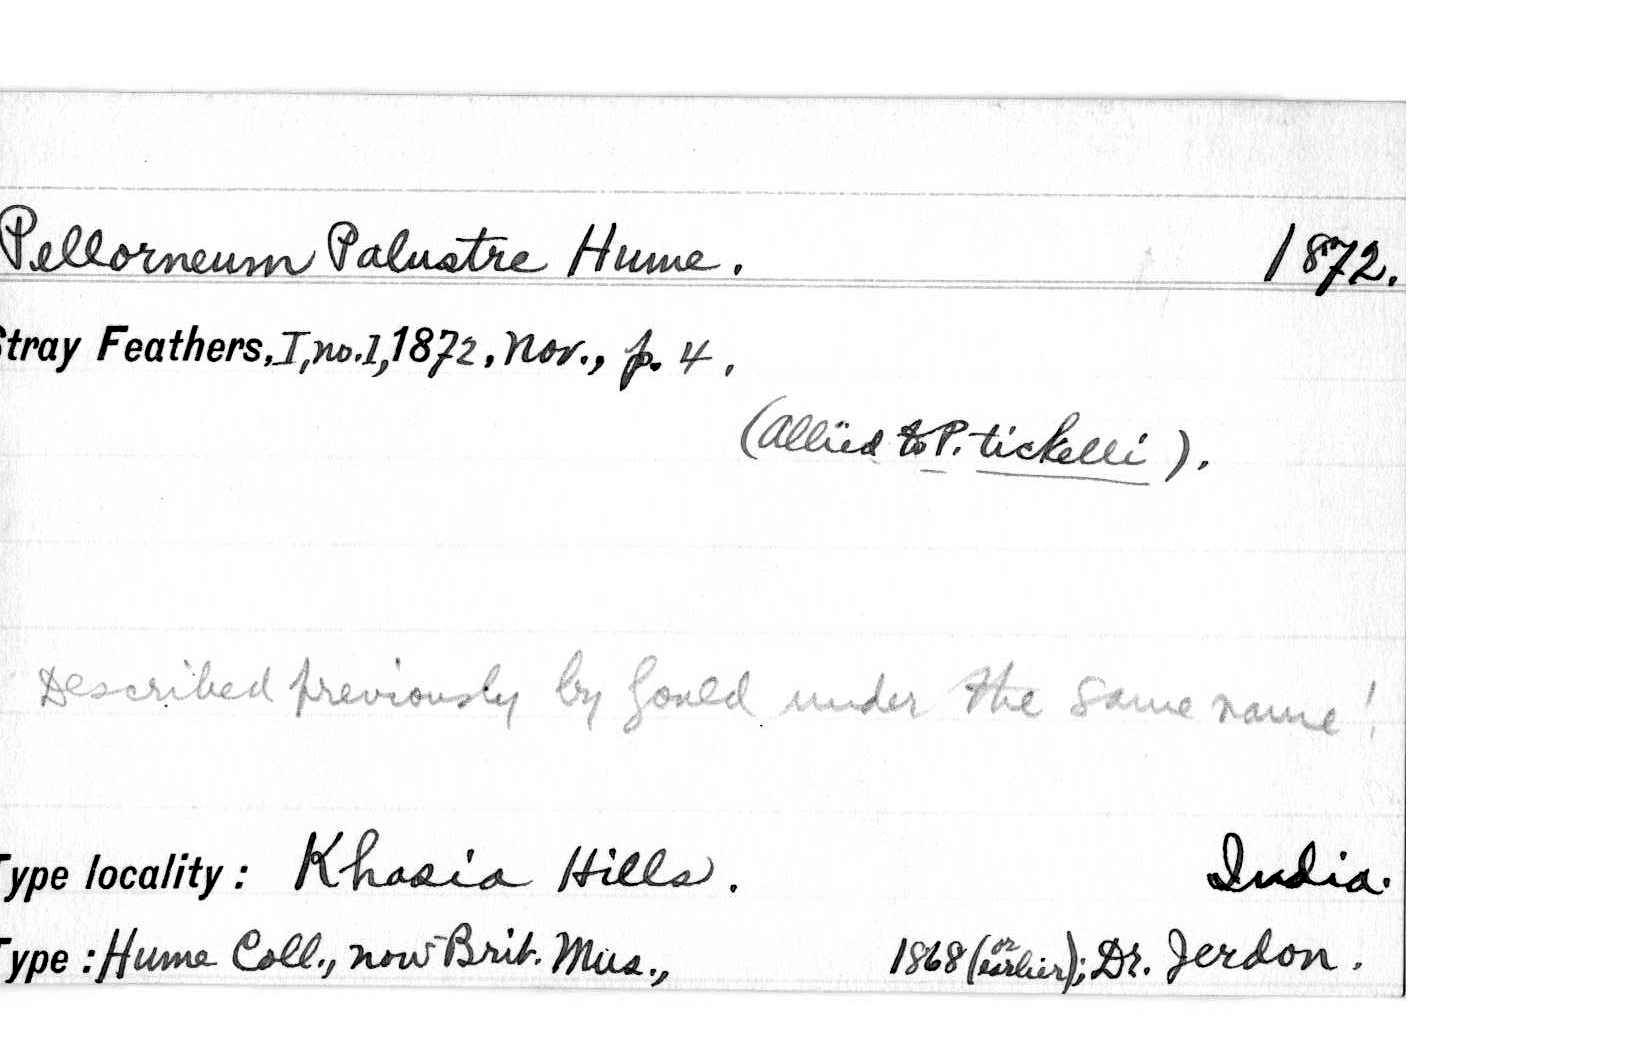 Pellorneum Palustre Hume. 1872.
Stray Feathers, I, no. 1, 1872, Nov., p. 4.
(Allied to P. tickelli).
Described previously by Gould under the same name!
Type locality: Khasia Hills. India.
Type: Hume Coll., now Brit. Mus., 1868 (or earlier); Dr. Jerdon.